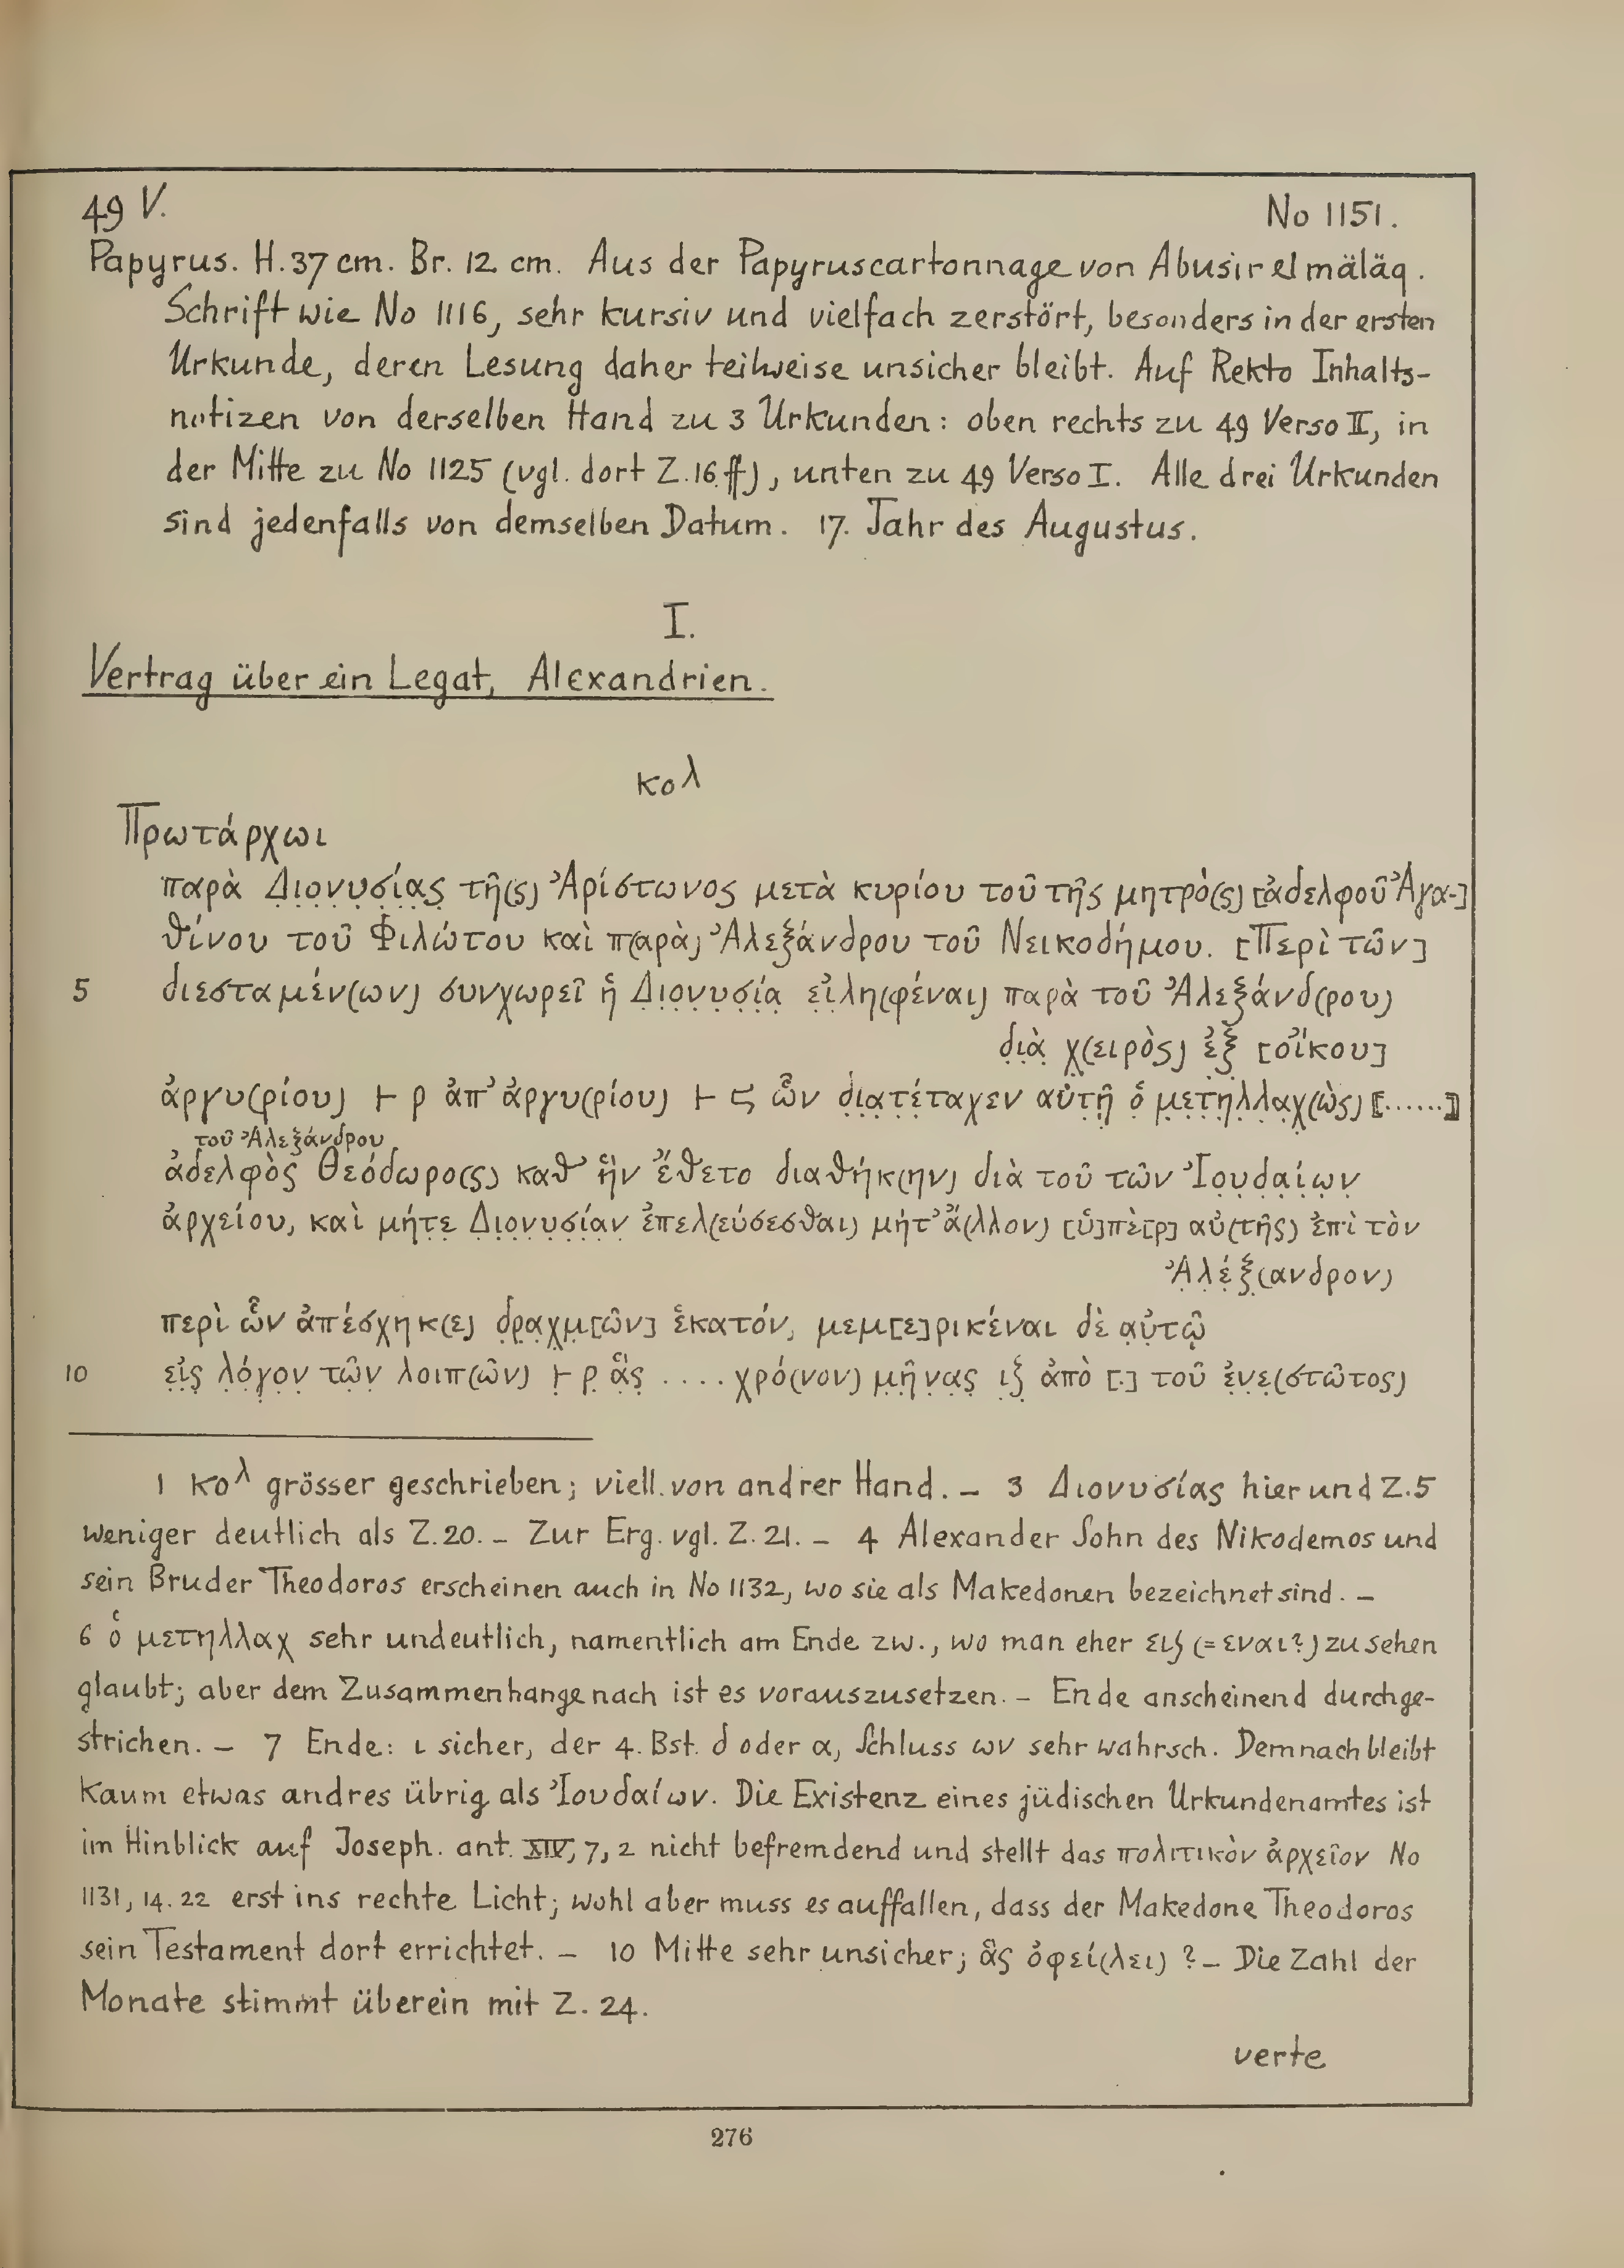 49 V. No 1151.
Papyrus. H. 37 cm. Br. 12 cm. Aus der Papyruscartonnage von Abusir el mäläq.
Schrift wie No 1116, sehr kursiv und vielfach zerstört, besonders in der ersten
Urkunde, deren Lesung daher teilweise unsicher bleibt. Auf Rekto Inhalts-
notizen von derselben Hand zu 3 Urkunden: oben rechts zu 49 Verso II, in
der Mitte zu No 1125 (vgl. dort Z. 16 ff), unten zu 49 Verso I. Alle drei Urkunden
sind jedenfalls von demselben Datum. 17. Jahr des Augustus.
I.
Vertrag über ein Legat, Alexandrien.
κολ
Πρωτάρχωι
παρὰ Δ̣ι̣ο̣ν̣υ̣σ̣ί̣α̣ς̣ τῆ(ς) Ἀρίστωνος μετὰ κυρίου τοῦ τῆς μητρὸ(ς) [ἀδελφοῦ Ἀγα-]
θίνου τοῦ Φιλώτου καὶ π(αρὰ) Ἀλεξάνδρου τοῦ Νεικοδήμου. [Περὶ τῶν]
5 διεσταμέν(ων) συνχωρεῖ ἡ Δ̣ι̣ο̣ν̣υ̣σ̣ί̣α̣ ε̣ἰ̣λη(φέναι) παρὰ τοῦ Ἀλεξάνδ(ρου)
δ̣ι̣ὰ̣ χ̣(ειρὸς) ἐ̣ξ̣ [οἴκου]
ἀργυ(ρίου) 𐅂 ρ ἀπ' ἀργυ(ρίου) 𐅂 ϛ ὧν δ̣ι̣α̣τ̣έ̣τ̣α̣χεν αὐ̣τ̣ῇ̣ ὁ̣ μ̣ε̣τ̣η̣λ̣λ̣α̣χ̣(ὼς) ⟦......⟧
τοῦ Ἀλεξάνδρου
ἀδελφὸς Θεόδωρο(ς) καθ' ἣν ἔθετο διαθήκ(ην) διὰ τοῦ τῶν Ἰ̣ο̣υ̣δ̣α̣ί̣ω̣ν̣
ἀρχείου, καὶ μήτ̣ε̣ Δ̣ι̣ο̣ν̣υ̣σ̣ί̣α̣ν̣ ἐπελ(εύσεσθαι) μήτ' ἄ(λλον) [ὑ]πὲ[ρ] αὐ(τῆς) ἐπὶ τὸν
Ἀ̣λ̣έ̣ξ̣(ανδρον)
περὶ ὧν ἀπέσχηκ(ε) δ̣ρ̣α̣χ̣μ̣[ῶν] ἑκατόν, μεμ[ε]ρικέναι δὲ α̣ὐ̣τῷ̣
10 ε̣ἰ̣ς̣ λ̣ό̣γ̣ο̣ν̣ τῶ̣ν̣ λοιπ(ῶν) 𐅂 ρ̣ ἃ̣ς̣ .... χρό(νον) μ̣ῆ̣ν̣α̣ς̣ ι̣ξ̣ ἀπὸ [.] τοῦ ἐ̣ν̣ε̣(στῶτος)
1 κολ grösser geschrieben; viell. von andrer Hand. – 3 Διονυσίας hier und Z. 5
weniger deutlich als Z. 20. – Zur Erg. vgl. Z. 21. – 4 Alexander Sohn des Nikodemos und
sein Bruder Theodoros erscheinen auch in No 1132, wo sie als Makedonen bezeichnet sind. –
6 ὁ μετηλλαχ sehr undeutlich, namentlich am Ende zw., wo man eher (= εναι?) zu sehen
glaubt; aber dem Zusammenhange nach ist es vorauszusetzen. – Ende anscheinend durchge-
strichen. – 7 Ende: ι sicher, der 4. Bst. δ oder α, Schluss ων sehr wahrsch. Demnach bleibt
kaum etwas andres übrig als Ἰουδαίων. Die Existenz eines jüdischen Urkundenamtes ist
im Hinblick auf Joseph. ant. XIV, 7, 2 nicht befremdend und stellt das πολιτικὸν ἀρχεῖον No
1131, 14. 22 erst ins rechte Licht; wohl aber muss es auffallen, dass der Makedone Theodoros
sein Testament dort errichtet. – 10 Mitte sehr unsicher; ἃς ὀφεί(λει) ? – Die Zahl der
Monate stimmt überein mit Z. 24.
verte
276